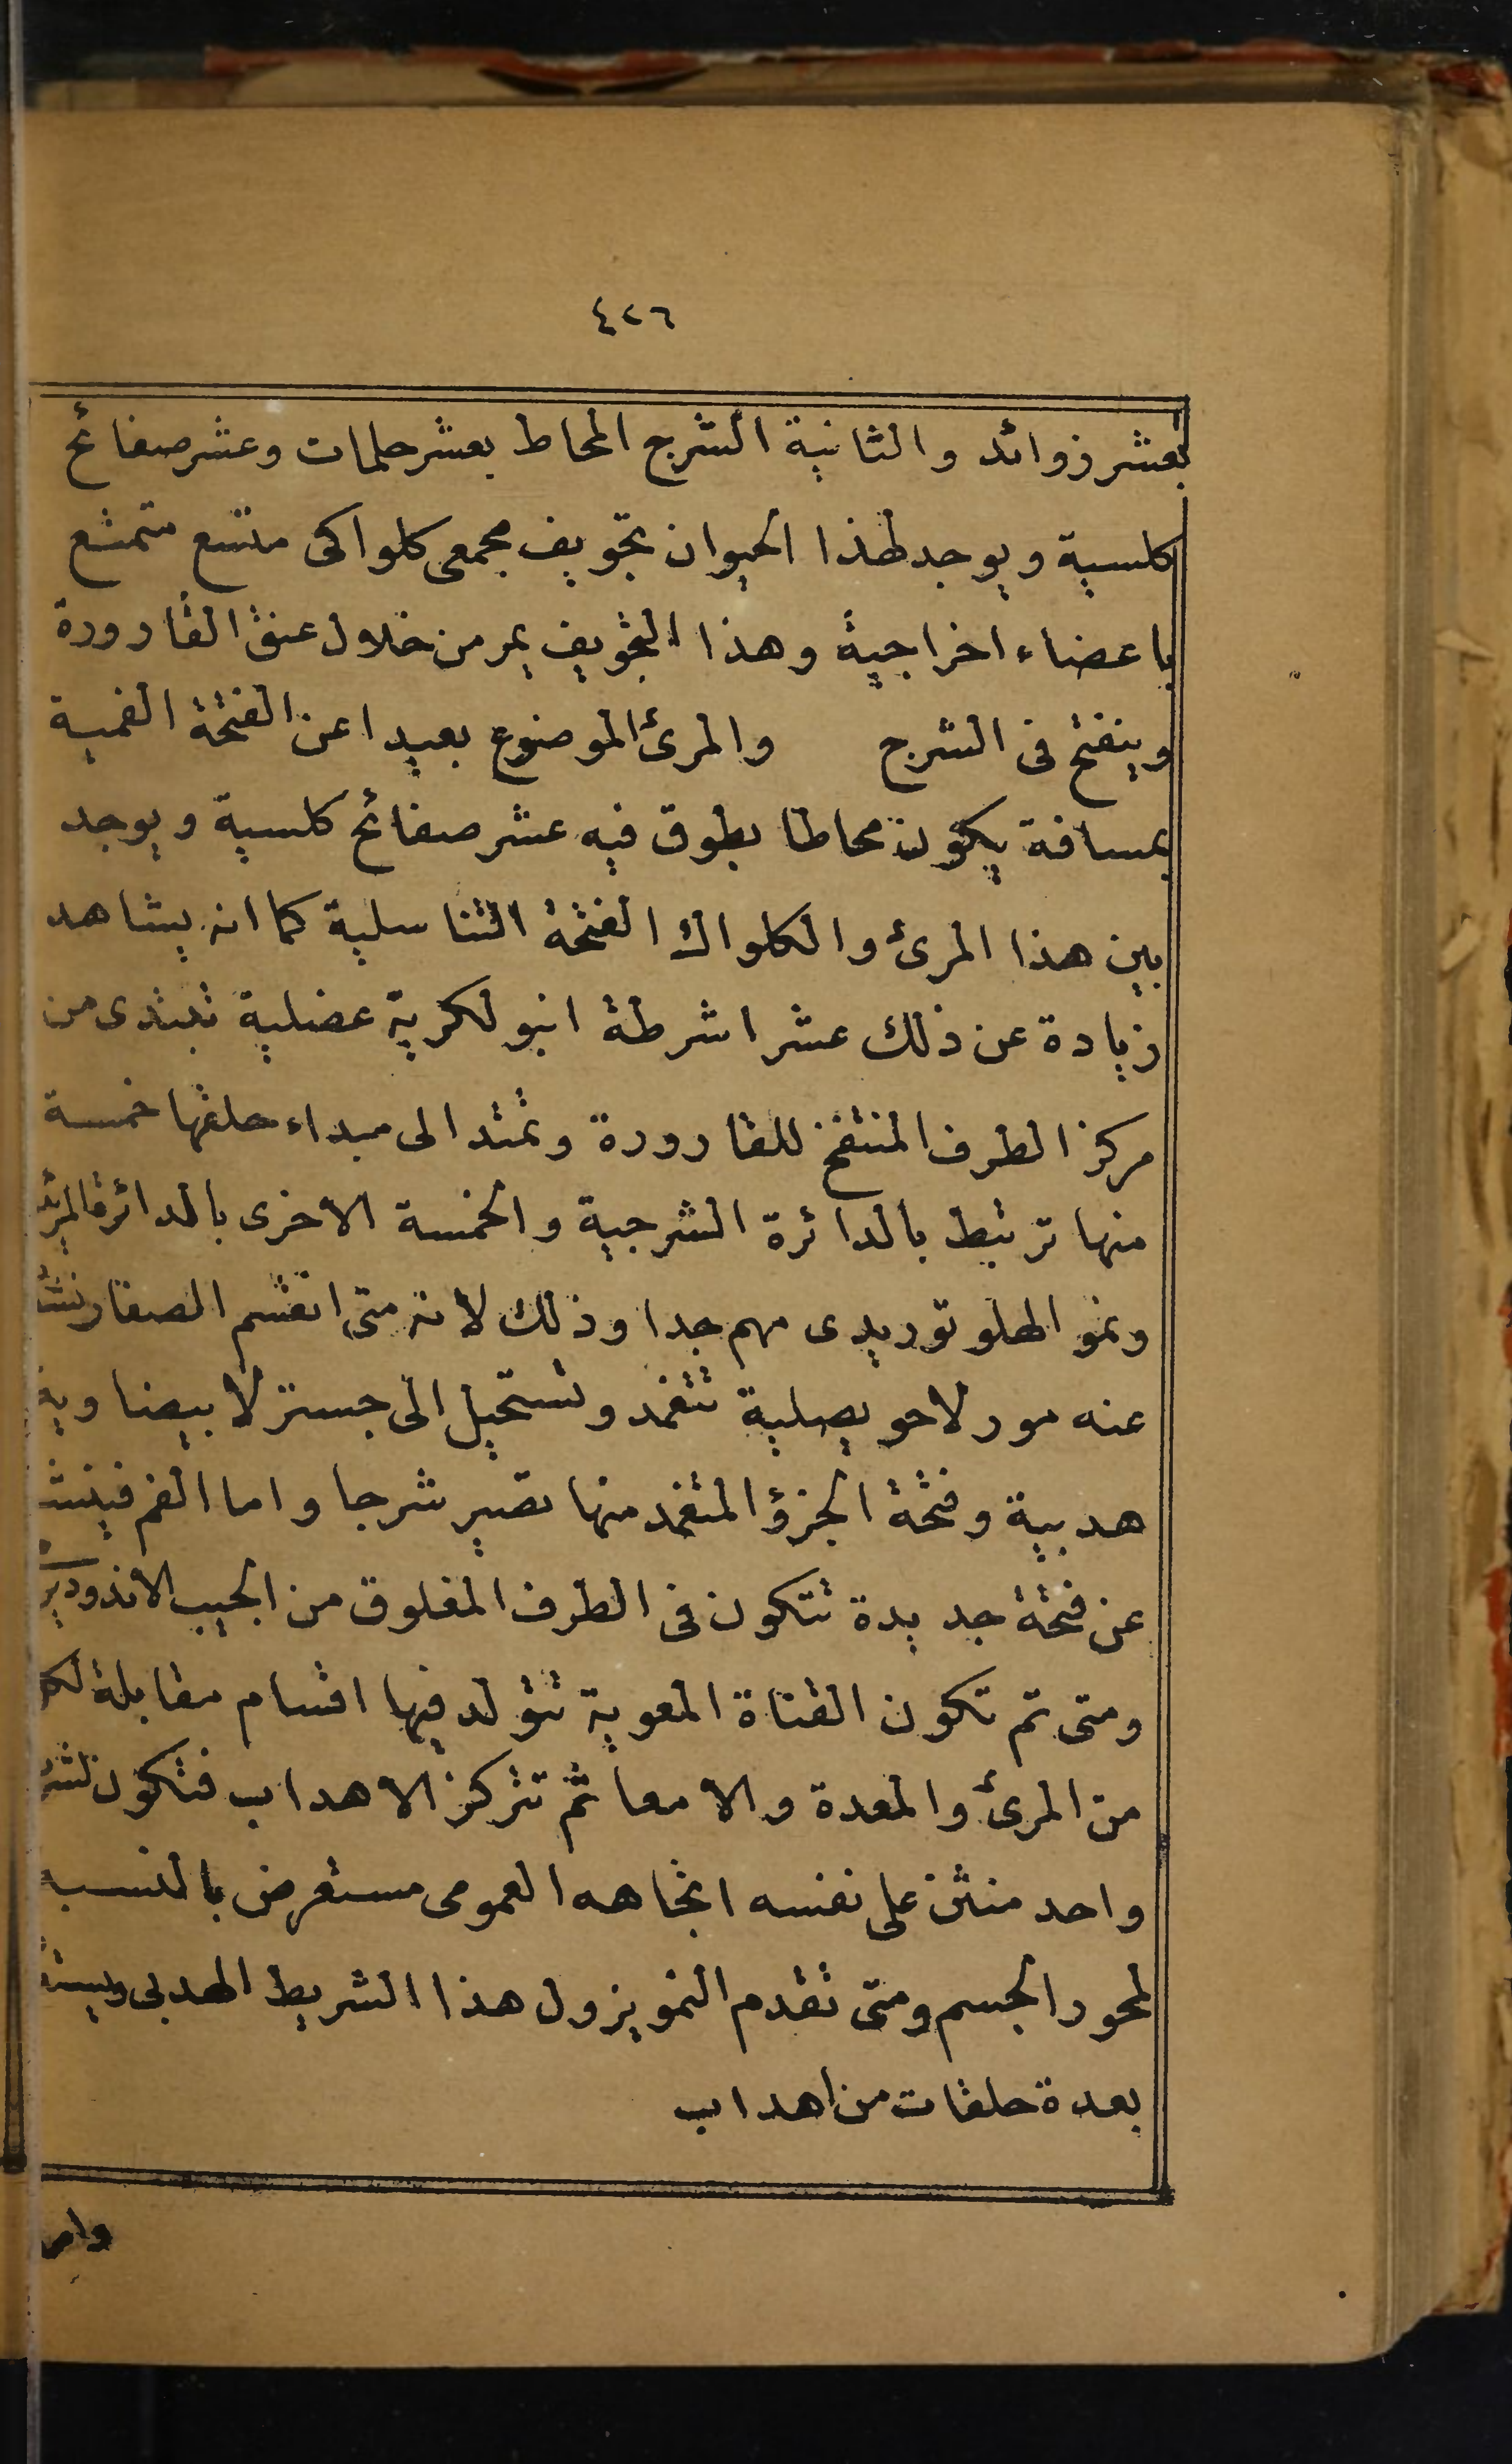 ٤٢٦
بعشر زوائد والثانية الشرج المحاط بعشر حلمات وعشر صفائح
كلسية ويوجد لهذا الحيوان تجويف مجمعى كلواكى متسع متمتع
باعضاء اخراجية وهذا التجويف يمر من خلال عنق القارورة
وينفتح فى الشرج والمرئ الموضوع بعيدا عن الفتحة الفمية
بمسافة يكون محاطا بطوق فيه عشر صفائح كلسية ويوجد
بين هذا المرئ والكلواك الفتحة التناسلية كما انه يشاهد
زيادة عن ذلك عشر اشرطة انبولكرية عضلية تبتدى من
مركز الطرف المنتفخ للقارورة وتمتد الى مبداء حلقها خمسة
منها ترتبط بالدائرة الشرجية والخمسة الاخرى بالدائرة
ونمو الهلوتوريدى مهم جدا وذلك لانه متى انقسم الصفار
عنه مورلا حويصلية تنغمد وتستحيل الى جسترلا بيضاوية
هدبية وفتحة الجزؤ المنغمد منها تصير شرجا واما الفم
عن فتحة جديدة تتكون فى الطرف المغلوق من الجيب
ومتى تم تكون القناة المعوية تتولد فيها اقسام مقابلة
من المرئ والمعدة والامعا ثم تتركز الاهداب فتكون
واحد منثن على نفسه اتجاهه العمومى مستعرض بالنسبة
لمحور الجسم ومتى تقدم النمو يزول هذا الشريط الهدبى
بعدة حلقات من اهداب